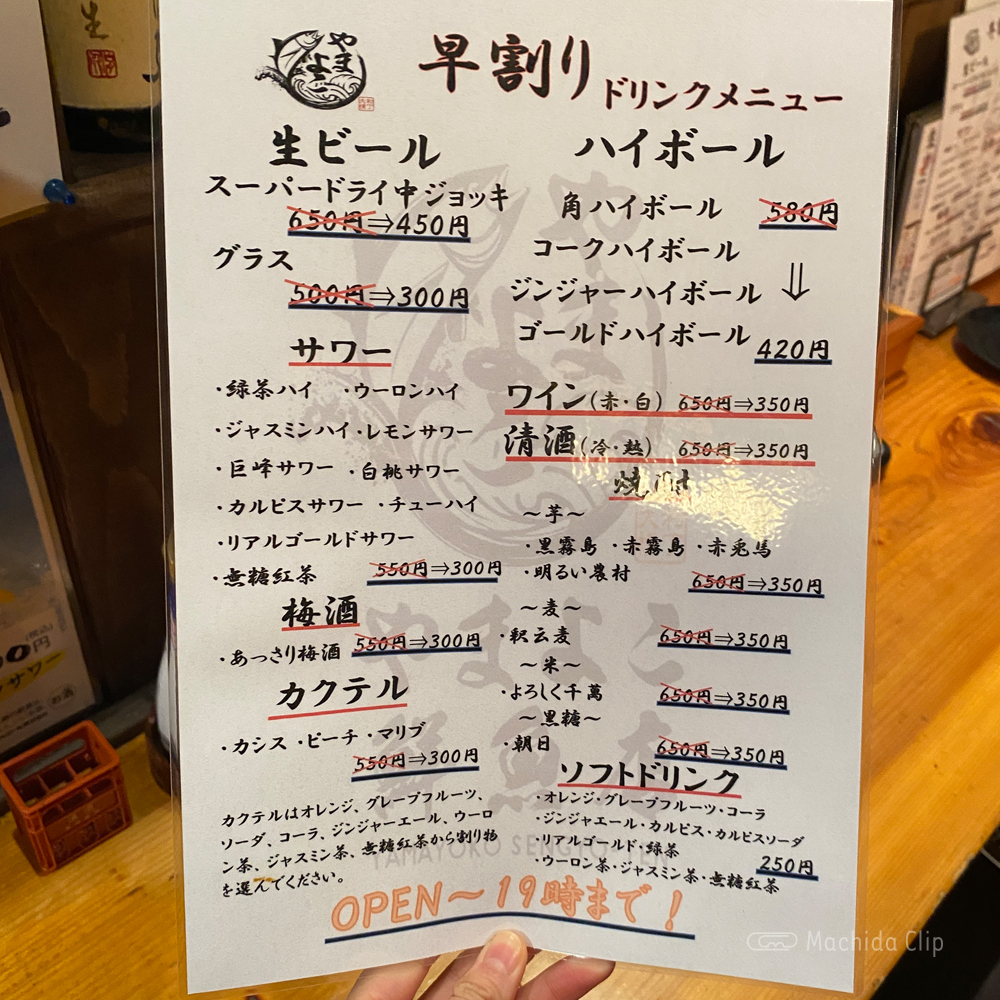 やまよこ
早割り
ドリンクメニュー
生ビール
スーパードライ中ジョッキ
650円⇒450円
グラス
500円⇒300円
サワー
・緑茶ハイ ・ウーロンハイ
・ジャスミンハイ・レモンサワー
・巨峰サワー ・白桃サワー
・カルピスサワー ・チューハイ
・リアルゴールドサワー
・無糖紅茶 550円⇒300円
梅酒
・あっさり梅酒 550円⇒300円
カクテル
・カシス ・ピーチ ・マリブ
550円⇒300円
カクテルはオレンジ、グレープフルーツ、
ソーダ、コーラ、ジンジャーエール、ウーロ
ン茶、ジャスミン茶、無糖紅茶から割り物
を選んでください。
ハイボール
角ハイボール 580円
コークハイボール
ジンジャーハイボール ⇓
ゴールドハイボール 420円
ワイン(赤・白) 650円⇒350円
清酒(冷・熱) 650円⇒350円
焼酎
〜芋〜
・黒霧島 ・赤霧島 ・赤兎馬
・明るい農村 650円⇒350円
〜麦〜
・釈云麦 650円⇒350円
〜米〜
・よろしく千萬 650円⇒350円
〜黒糖〜
・朝日 650円⇒350円
ソフトドリンク
・オレンジ・グレープフルーツ・コーラ
・ジンジャエール・カルピス・カルピスソーダ
・リアルゴールド・緑茶
・ウーロン茶・ジャスミン茶・無糖紅茶
250円
OPEN〜19時まで!
Machida Clip